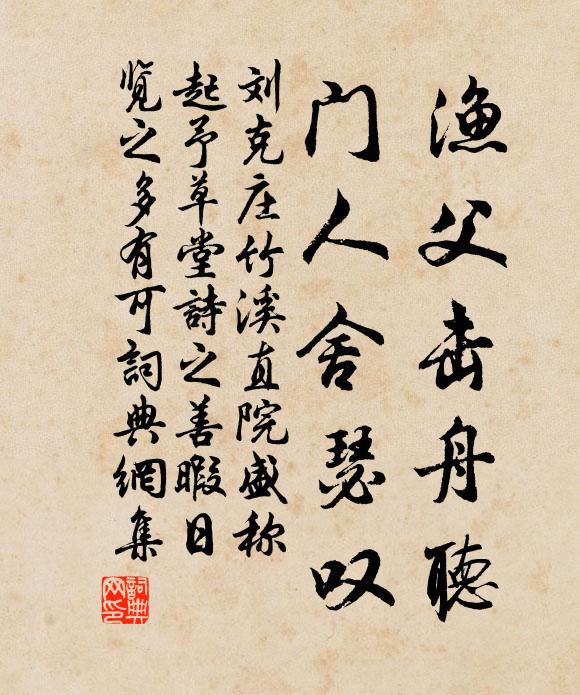 漁父击舟聽
门人舍瑟叹
刘克庄竹溪直院盛称
起予草堂詩之善暇日
覧之多有可詞典網集
詞典網印